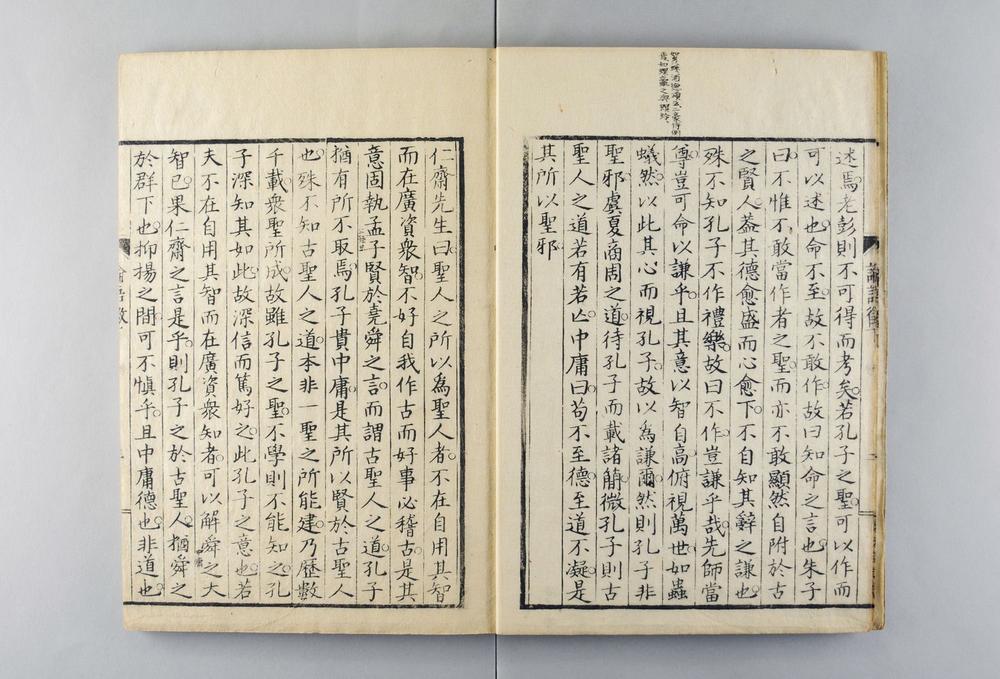 述焉老彭則不可得而考矣若孔子之聖可以作而
可以述也命不至故不敢作故曰知命之言也朱子
曰不惟不敢當作者之聖而亦不敢顯然自附於古
之賢人葢其德愈盛而心愈下不自知其辭之謙也
殊不知孔子不作禮樂故曰不作豈謙乎哉先師當
尊豈可命以謙乎且其意以智自高俯視萬世如蟲
蟻然以此其心而視孔子故以為謙爾然則孔子非
聖邪虞夏商周之道待孔子而載諸簡微孔子則古
聖人之道若有若亾中庸曰苟不至德至道不凝是
其所以聖邪
論語徵
仁齋先生曰聖人之所以為聖人者不在自用其智
而在廣資衆智不好自我作古而好事必稽古是其
意固執孟子賢於堯舜之言而謂古聖人之道孔子
猶有所不取焉孔子貴中庸是其所以賢於古聖人
也殊不知古聖人之道本非一聖之所能建乃歷數
千載衆聖所成故雖孔子之聖不學則不能知之孔
子深知其如此故深信而篤好之此孔子之意也若
夫不在自用其智而在廣資衆知者可以解舜之大
智已果仁齋之言是乎則孔子之於古聖人猶舜之
於群下也抑揚之間可不愼乎且中庸德也非道也
論語徵